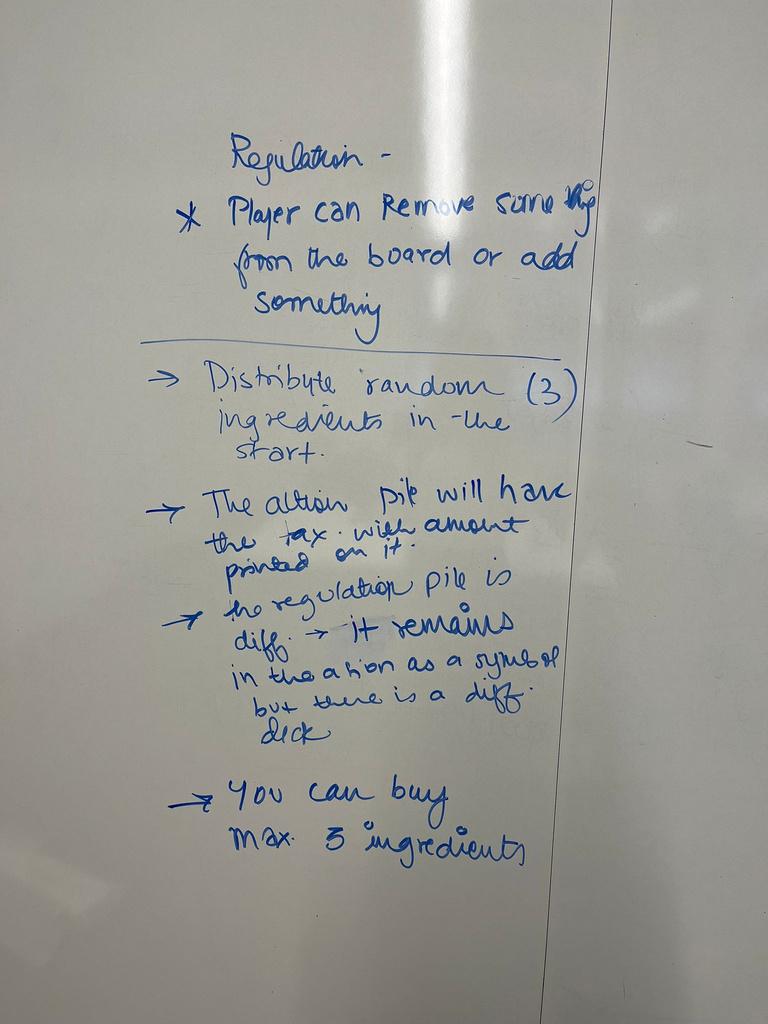 Regulation -
* Player can Remove some thing
from the board or add
something
→ Distribute random (3)
ingredients in the
start.
→ The action pile will have
the tax. with amount
printed on it.
→ the regulation pile is
diff. → it remains
in the action as a symbol
but there is a diff.
deck
→ You can buy
max. 3 ingredients